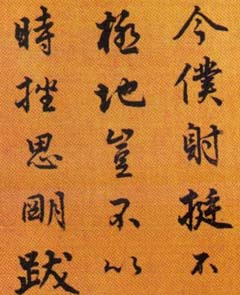 今僕射挺不
極地豈不以
時挫思明跋